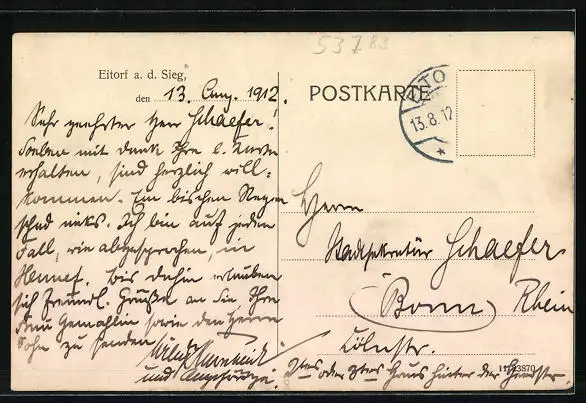 53783
Eitorf a. d. Sieg,
den 13. Aug. 1912.
POSTKARTE
13.8.12
Sehr geehrter Herr Schaefer!
Soeben mit Dank Ihre l. Karte
erhalten, sind herzlich will-
kommen. Ein bischen Regen
schad nicks. Ich bin auf jeden
Fall, wie abgesprochen, in
Hennef. Bis dahin erlauben
sich freundl. Grüße an Sie, Ihre
Frau Gemahlin sowie den Herrn
Sohn zu senden
und Angehörige.
Herrn
Stadtsekretär Schaefer
Bonn Rhein
Cölnstr.
2tes oder 3tes Haus hinter der